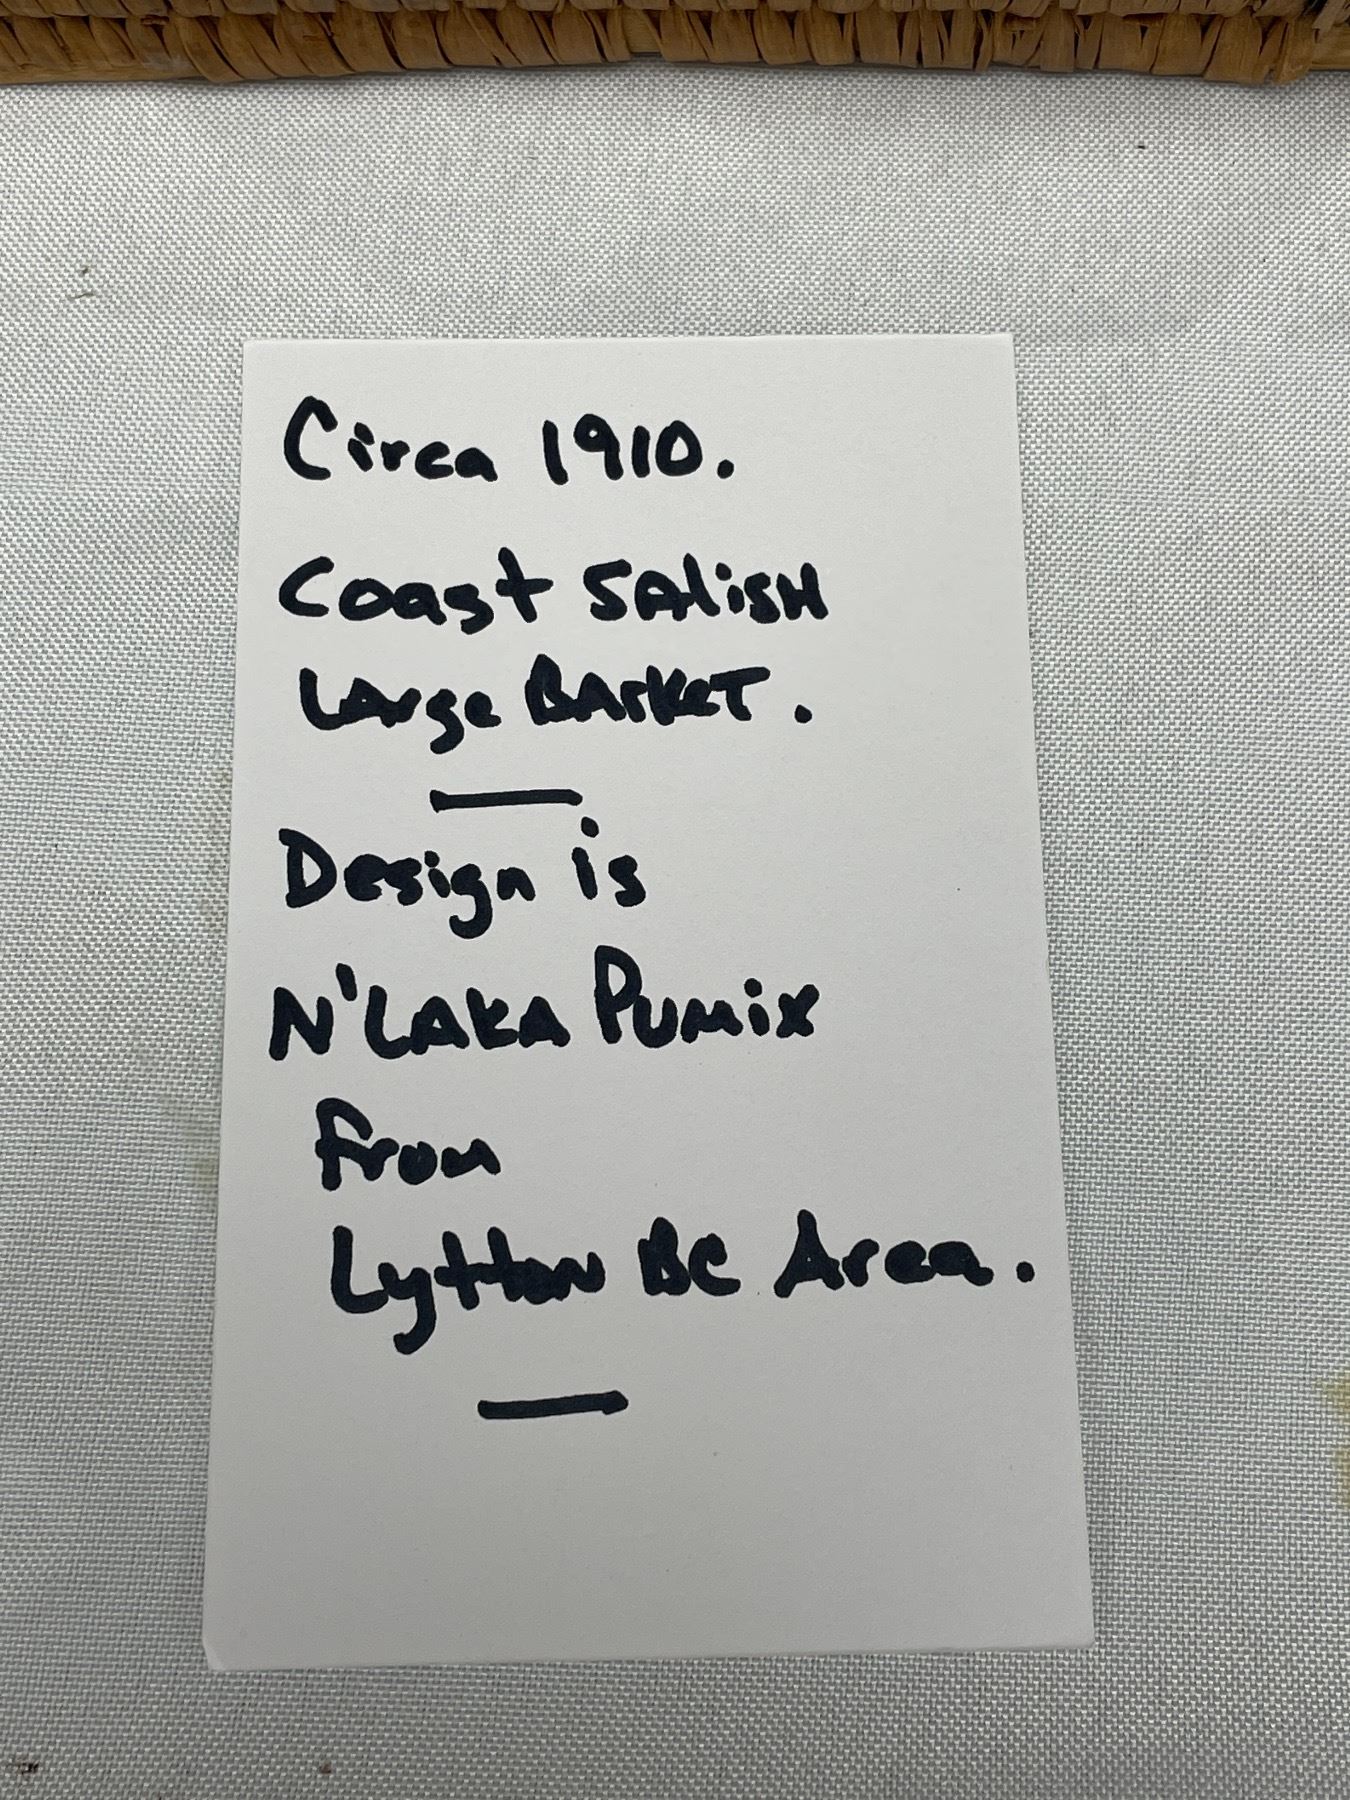 Circa 1910.
Coast SALiSH
LArge BASKET.
Design is
N'LAKA PUMix
From
Lytton BC Area.